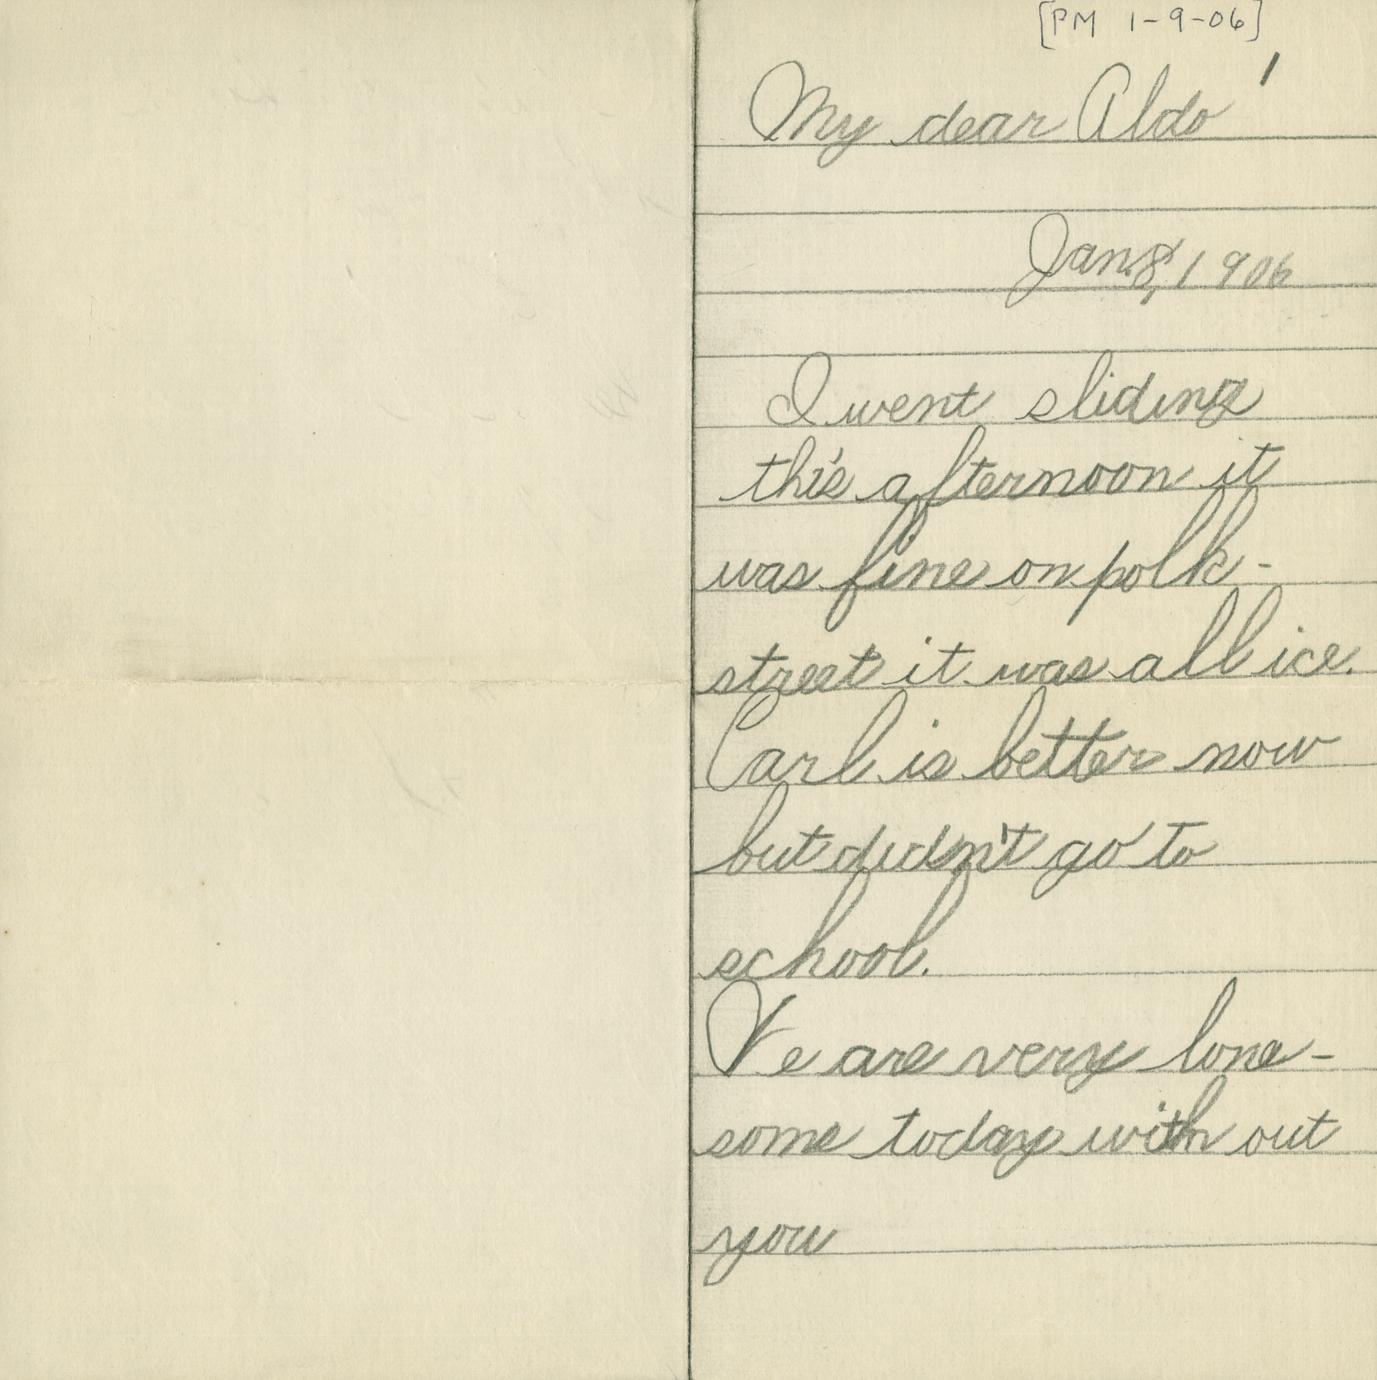 [PM 1-9-06]
1
My dear Aldo
Jan. 8, 1906
I went sliding
this afternoon it
was fine on polk-
street it was all ice.
Carl is better now
but didn't go to
school.
We are very lone-
some today with out
you